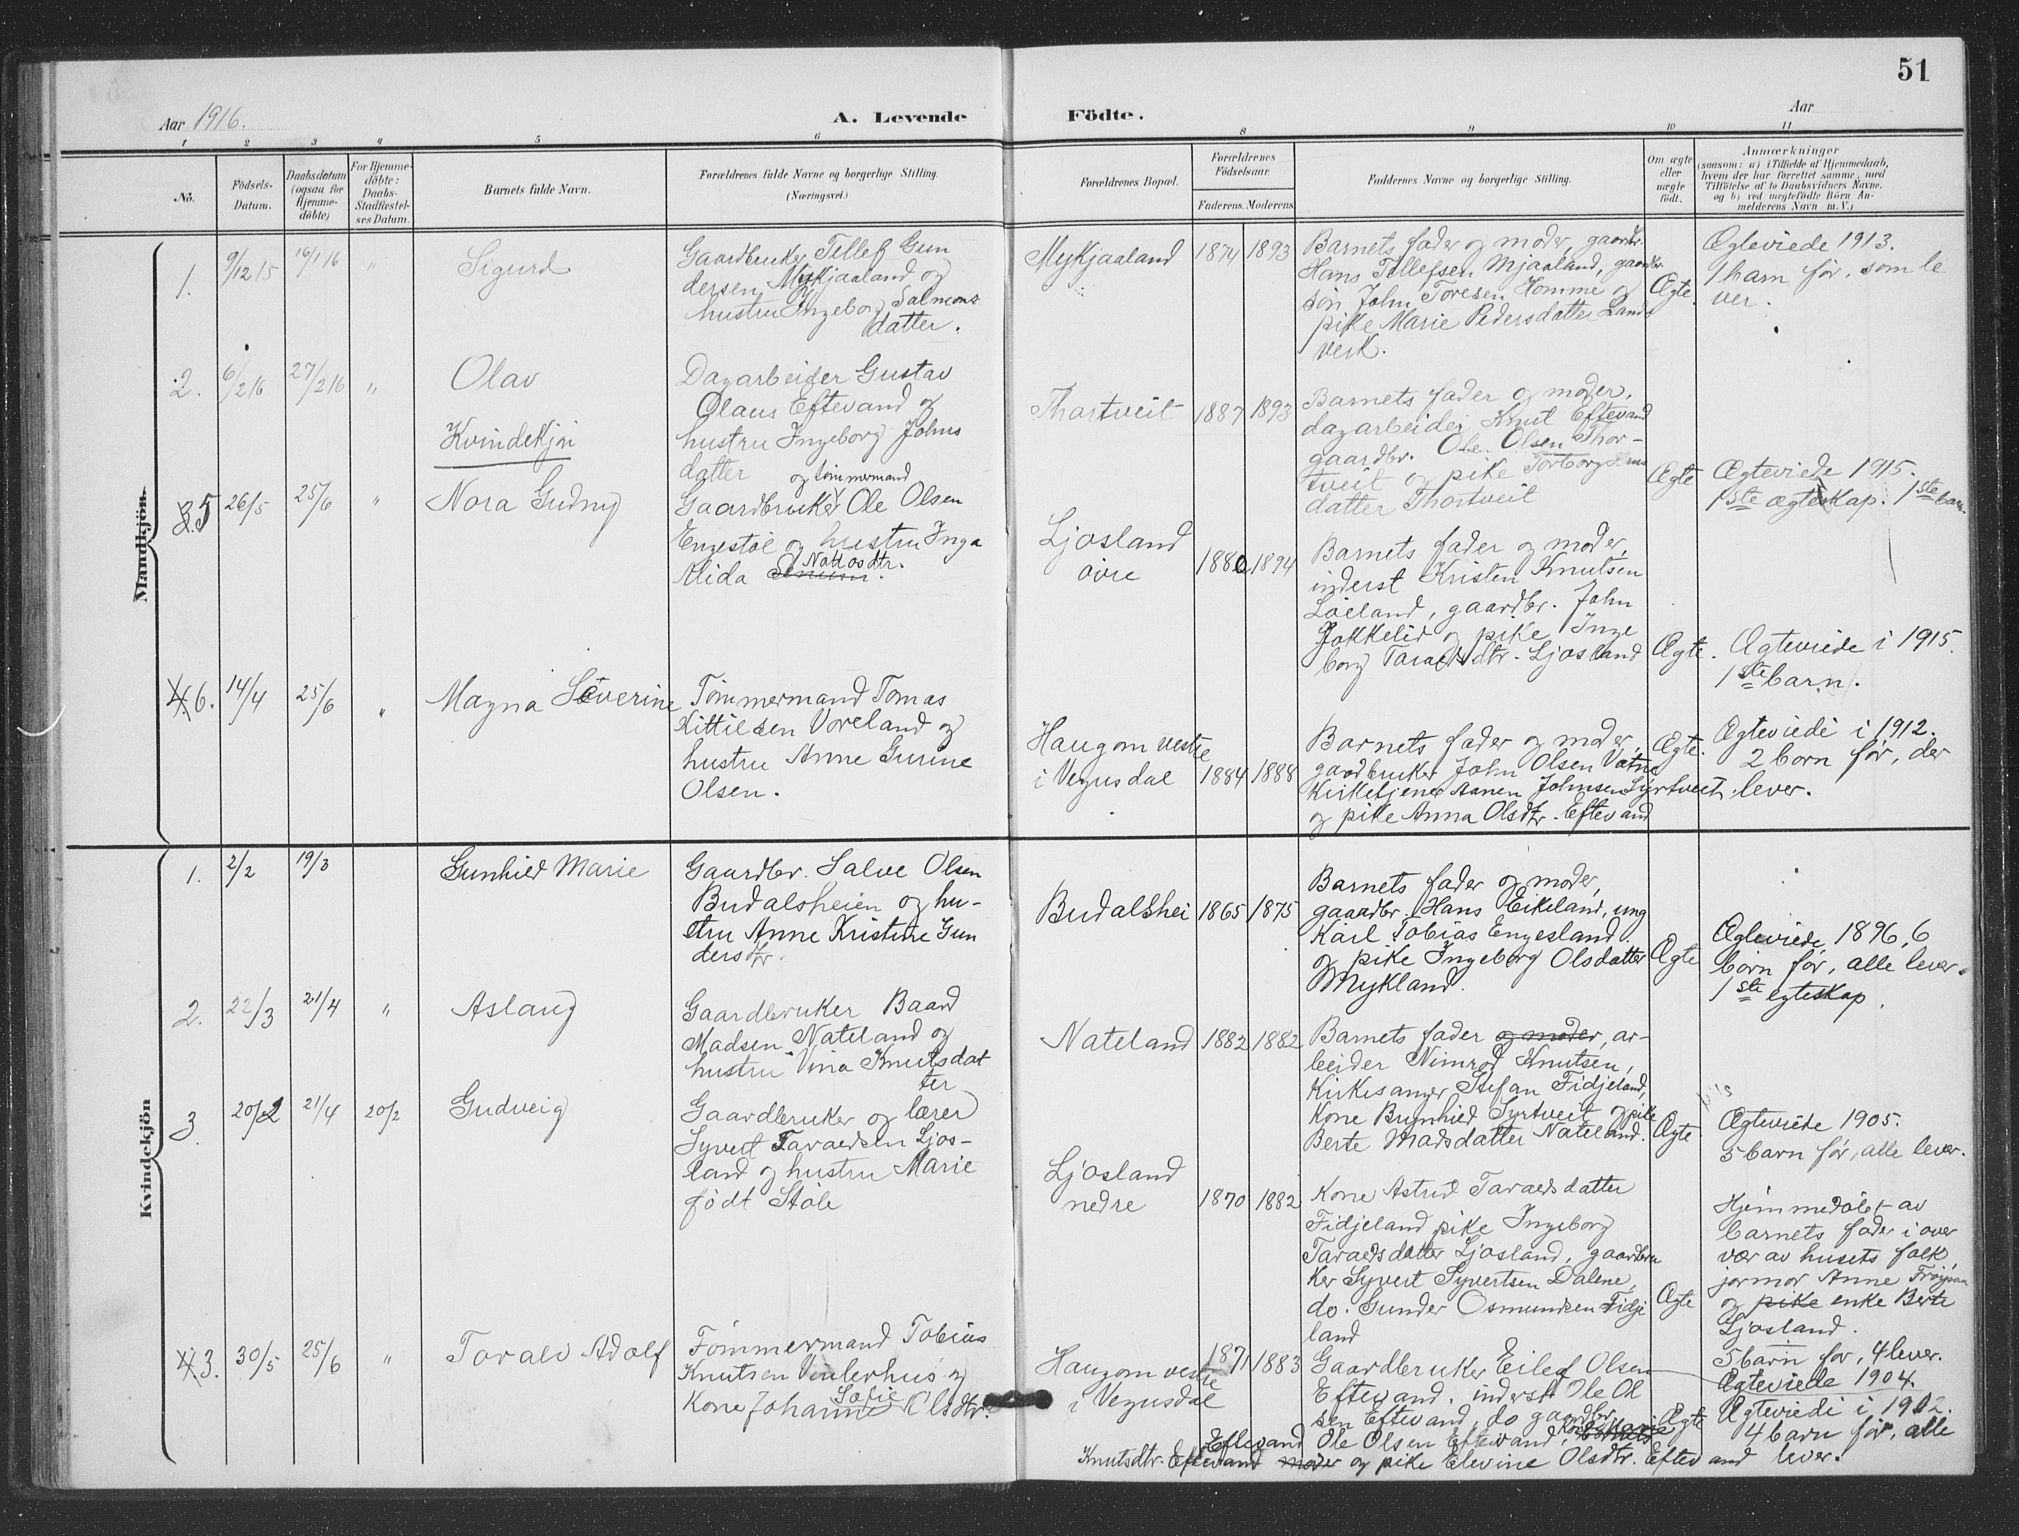 51
Aar 1916.
A. Levende Födte.
Aar
1 2 3 4 5 6 8 9 10 11
No.
Födsels-
Datum.
Daabsdatum
(ogsaa for
Hjemme-
döbte)
For Hjemme-
döbte:
Daabs-
Stadfæstel-
ses Datum.
Barnets fulde Navn.
Forældrenes fulde Navne og borgerlige Stilling.
(Næringsvei.)
Forældrenes Bopæl.
Forældrenes
Födselsaar.
Faderens. Moderens.
Faddernes Navne og borgerlige Stilling.
Om ægte
eller
uægte
födt.
Anmærkninger
(saasom: a) i Tilfælde af Hjemmedaab,
hvem der har forrettet samme, med
Tilföielse af to Daabsvidners Navne.
og b) ved uægtefödte Börn An-
melderens Navn m. V.)
Mandkjön.
1. 9/12 15 16/1 16 " Sigurd
Gaardbruker Tellef Gun
dersen Mykjaaland og
hustru Ingeborg Salmons
datter.
Mykjaaland 1874 1893
Barnets fader og moder, gaardbr.
Hans Tellefsen Mjaaland, gaardbr.
sön John Toresen Homme og
pike Marie Pedersdatter Lands
verk.
Ægte.
Ægteviede 1913.
1 barn för, som le
ver.
2. 6/2 16 27/2 16 " Olav
Dagarbeider Gustav
Olaus Eftevand og
hustru Ingeborg Johns
datter
Thortveit 1887 1893
Barnets fader og moder,
dagarbeider Knut Eftevand
gaardbr. Ole Olsen Thor-
tveit og pike Torborg
datter Thortveit
Ægte
Ægteviede 1915.
1ste ægteskap. 1ste barn.
Kvindekjön
5 26/5 25/6 " Nora Gudny
og tömmermand
Gaardbruker Ole Olsen
Engestöl og hustru Inga
Alida Nattosdtr.
Ljosland
övre
1880 1894
Barnets fader og moder,
inderst Kristen Knutsen
Löland, gaardbr. John
Jokkelid og pike Inge
borg Taraldsdtr. Ljosland
Ægte.
Ægteviede i 1915.
1ste barn.
4 6. 14/4 25/6 " Magna Severine
Tömmermand Tomas
Kittilsen Voreland og
hustru Anne Gurine
Olsen.
Haugom vestre
i Vegusdal
1884 1888
Barnets fader og moder,
gaardbruker John Olsen Vatne
Kirketjener Aanen Johnsen Syrtveit
og pike Anna Olsdtr. Eftevand
Ægte.
Ægteviede i 1912.
2 born för, der
lever.
Kvindekjön
1. 2/2 19/3 Gunhild Marie
Gaardbr. Salve Olsen
Budalsheien og hu-
stru Anne Kristine Gun
dersdtr.
Budalshei 1865 1875
Barnets fader og moder,
gaardbr. Hans Eikeland, ung
Karl Tobias Engesland
og pike Ingeborg Olsdatter
Mykland.
Ægte
Ægteviede 1896, 6
börn för, alle lever.
1ste egteskap.
2. 22/3 21/4 " Aslaug
Gaardbruker Baard
Madsen Nateland og
hustru Vina Knutsdat
ter
Nateland 1882 1882
Barnets fader og moder, ar-
beider Nimrod Knutsen,
Kirkesanger Stefan Fidjeland,
Kone Brynhild Syrtveit og pike
Berte Madsdatter Nateland.
Ægte
Ægteviede 1905.
5 barn för, alle lever.
3. 20/2 21/4 20/2 Gudveig
Gaardbruker og lærer
Syvert Taraldsen Ljos-
land og hustru Marie
födt Stöle
Ljosland
nedre
1870 1882
Kone Astrid Taraldsdatter
Fidjeland, pike Ingeborg
Taraldsdatter Ljosland, gaardbru
ker Syvert Syvertsen Dalene,
do. Gunder Osmundsen Fidje
land
Ægte
Hjemmedöbt av
barnets fader i over
vær av husets folk,
jormor Anne
og pike enke Berte
Ljosland.
5 barn för, 4 lever.
Ægteviede 1904.
4 3. 30/5 25/6 " Torald Adolf
Tömmermand Tobias
Knutsen Vinlerhus og
Kone Johanne Sofie Olsdtr.
Haugom vestre
i Vegusdal
1871 1883
Gaardbruker Eilef Olsen
Eftevand, inderst Ole Ol
sen Eftevand, do gaardbr.
Eftevand Ole Olsen Eftevand, Kone Marie
Knutsdtr. Eftevand moder og pike Elevine Olsdtr. Eftevand
Ægte
Ægteviede i 1902.
4 barn för, alle
lever.